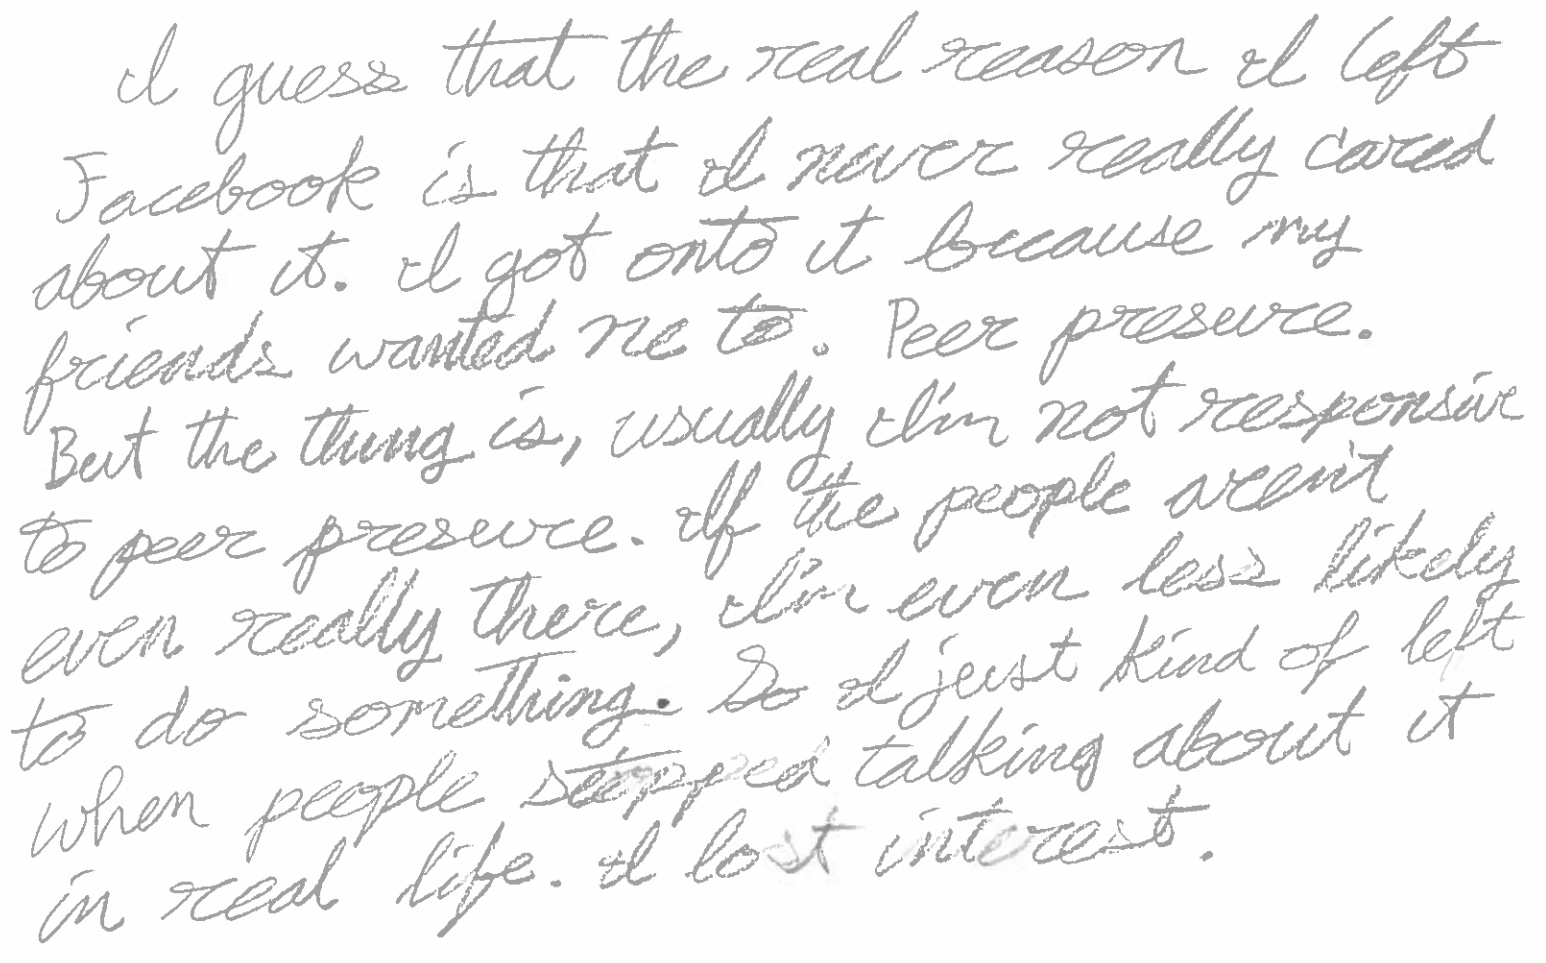 I guess that the real reason I left
Facebook is that I never really cared
about it. I got onto it because my
friends wanted me to. Peer presure.
But the thing is, usually I'm not responsive
to peer presure. If the people aren't
even really there, I'm even less likely
to do something. So I just kind of left
when people stopped talking about it
in real life. I lost interest.